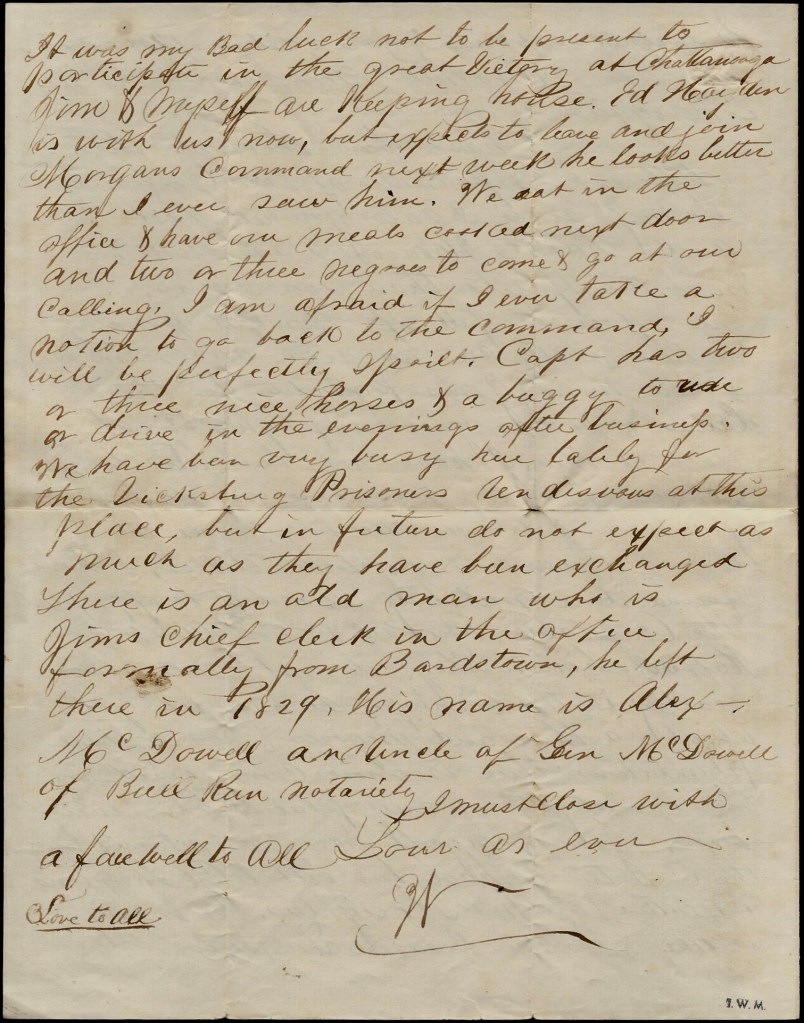 It was my Bad luck not to be present to
participate in the great Victory at Chattanooga
Jim & Myself are Keeping house. Ed Hayden
is with us now, but expects to leave and join
Morgans Command next week he looks better
than I ever saw him. We eat in the
office & have our meals cooked next door
and two or three negroes to come & go at our
Calling. I am afraid if I ever take a
notion to go back to the command, I
will be perfectly spoilt. Capt has two
or three nice horses & a buggy to ride
or drive in the evenings after business.
We have been very busy here lately for
the Vicksburg Prisoners rendesvous at this
place, but in future do not expect as
much as they have been exchanged
There is an old man who is
Jims Chief Clerk in the office
formally from Bardstown, he left
there in 1829. His name is Alex
McDowell an Uncle of Gen McDowell
of Bull Run notariety I must Close with
a farewell to All Your as ever
W
Love to all
T. W. M.